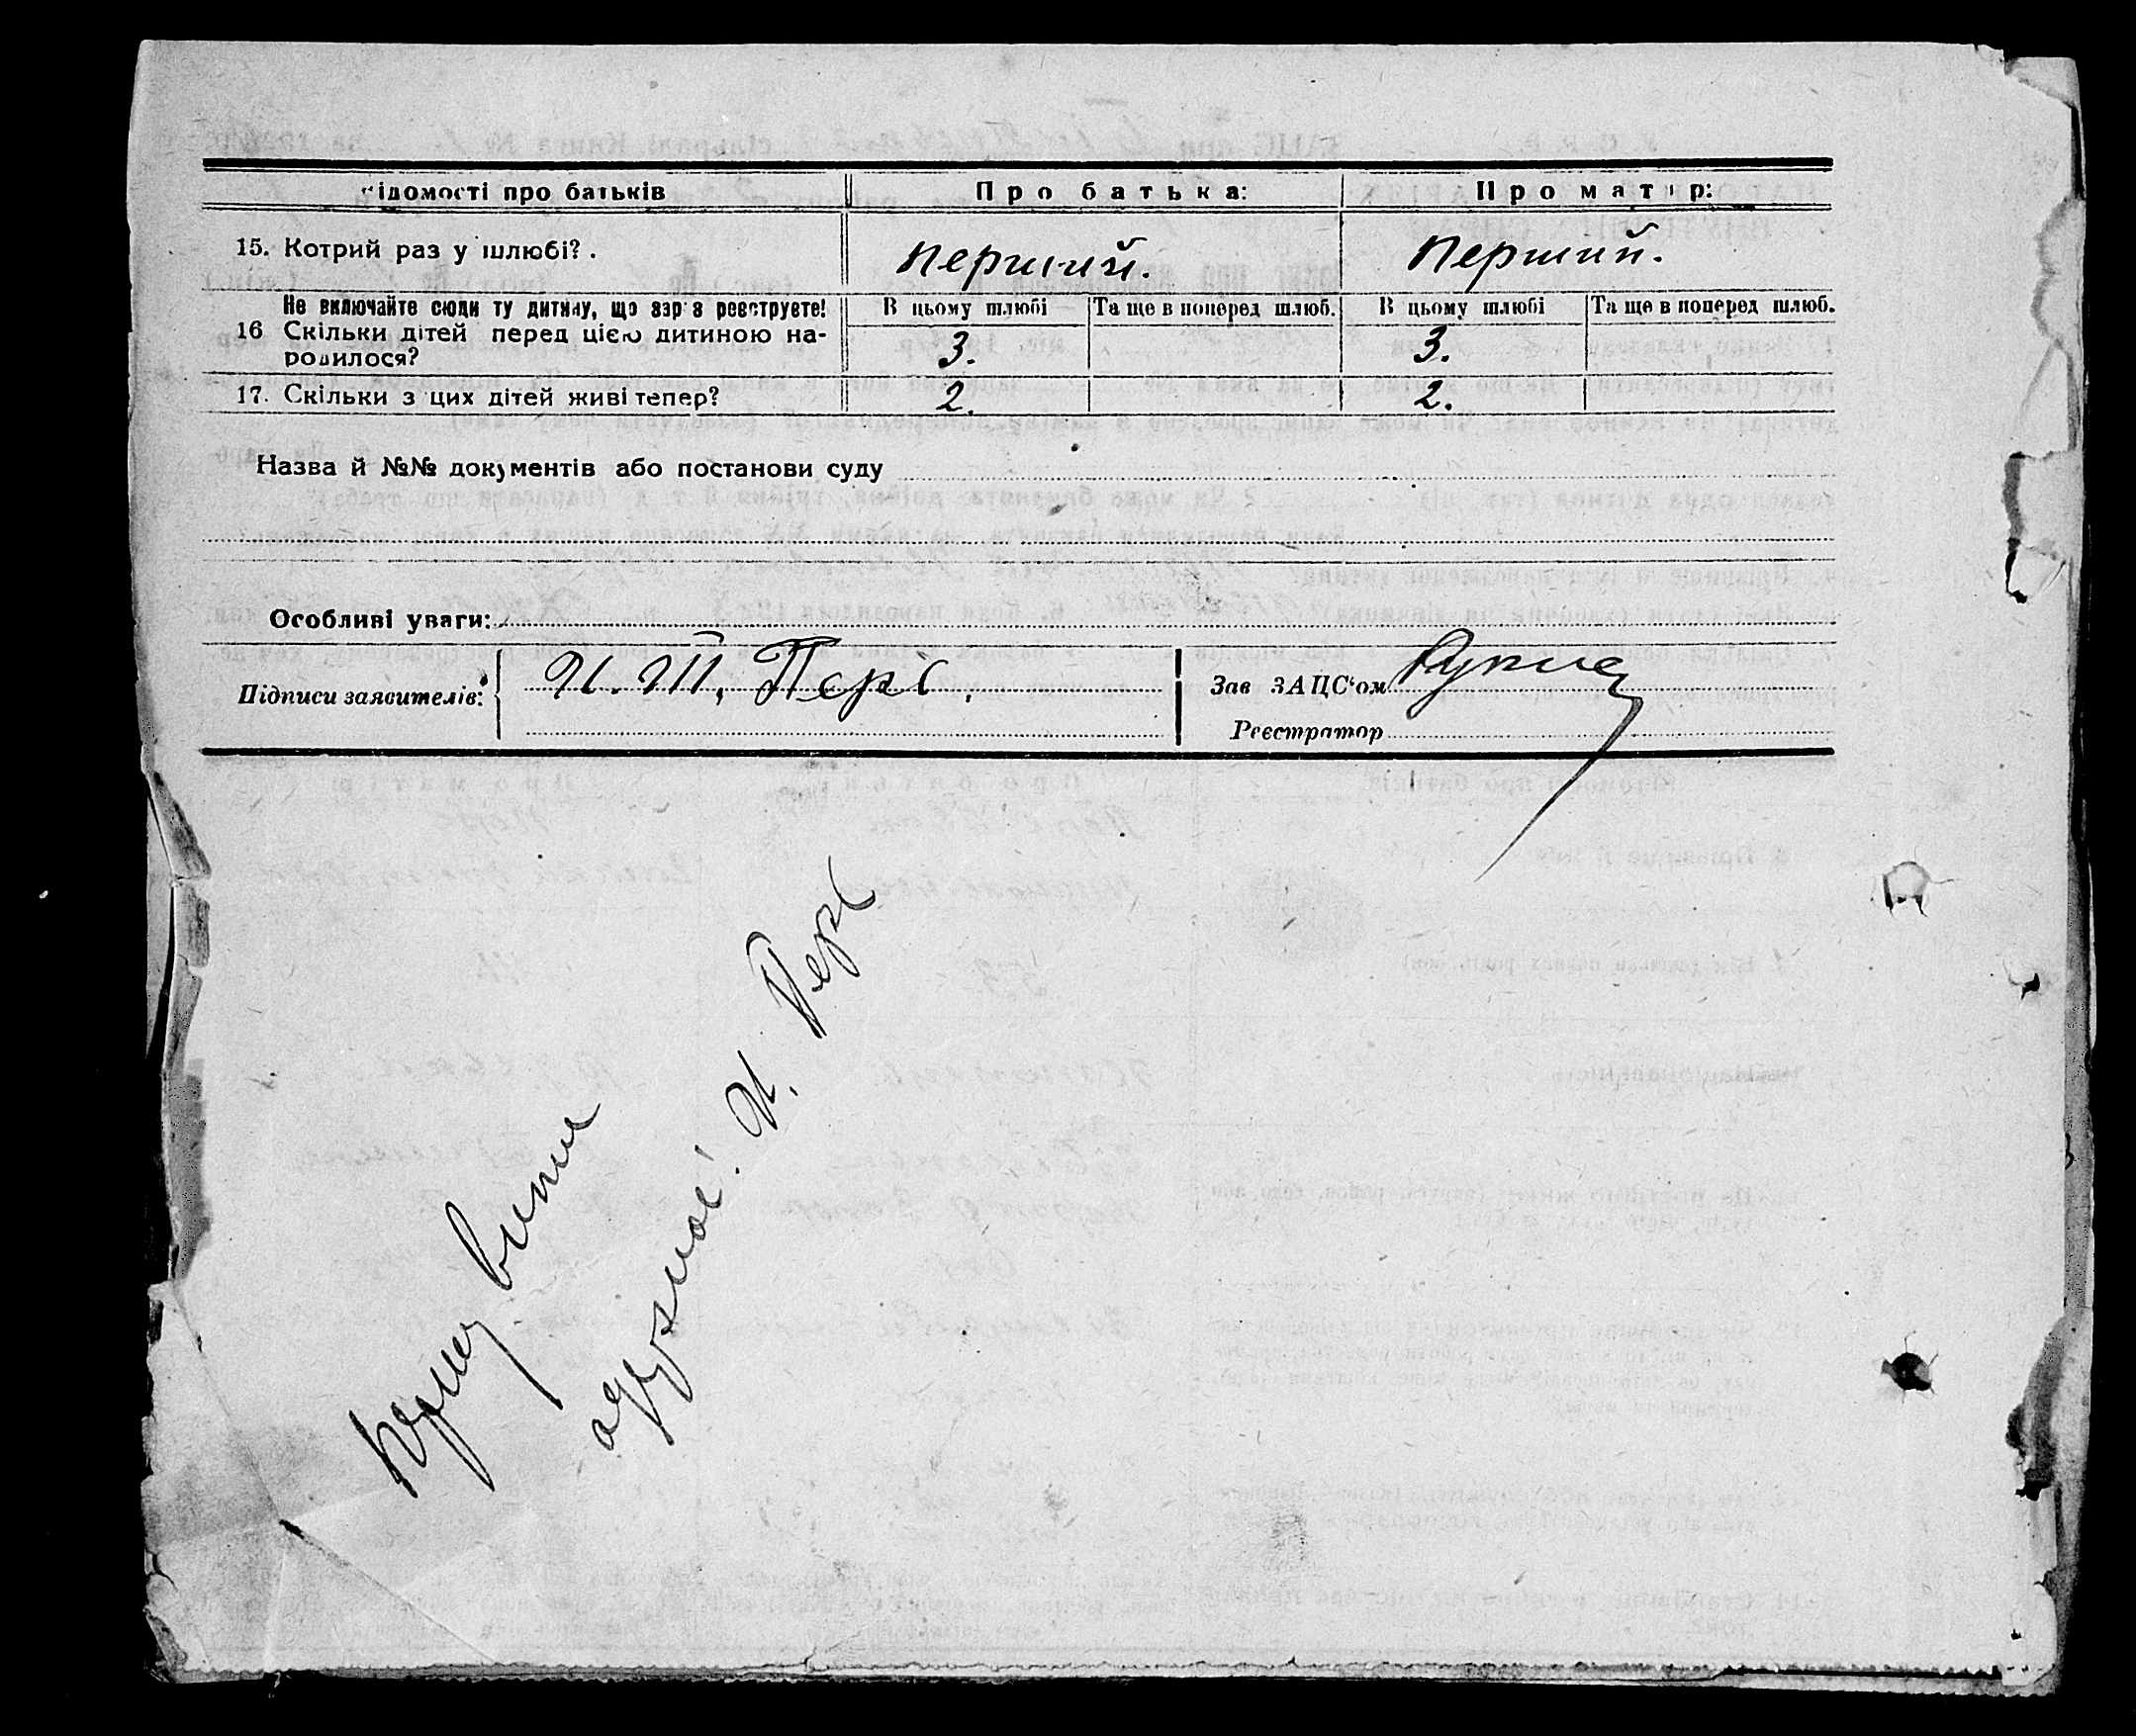 Відомості про батьків Про батька: Про матір:
15. Котрий раз у шлюбі? . перший. Перший.
Не включайте сюди ту дитину, що зараз реєструєте! В цьому шлюбі Та ще в поперед шлюб. В цьому шлюбі Та ще в поперед шлюб.
16 Скільки дітей перед цією дитиною на-
родилося? 3. 3.
17. Скільки з цих дітей живі тепер? 2. 2.
Назва й №№ документів або постанови суду
Особливі уваги:
Підписи заявителів: И. Ш. Перґ. Зав ЗАЦС‘ом
Реєстратор
першу випис
одержал! И. Перґ